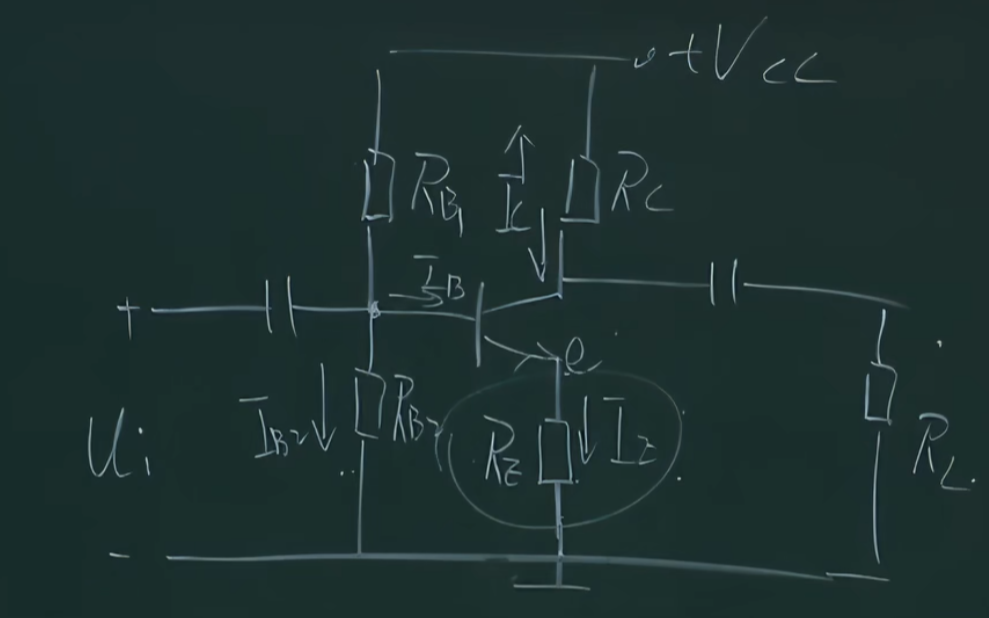 +VCC
RB1
IC
RC
IB
+
e
Ui
IB2
RB2
RE
IE
RL
-